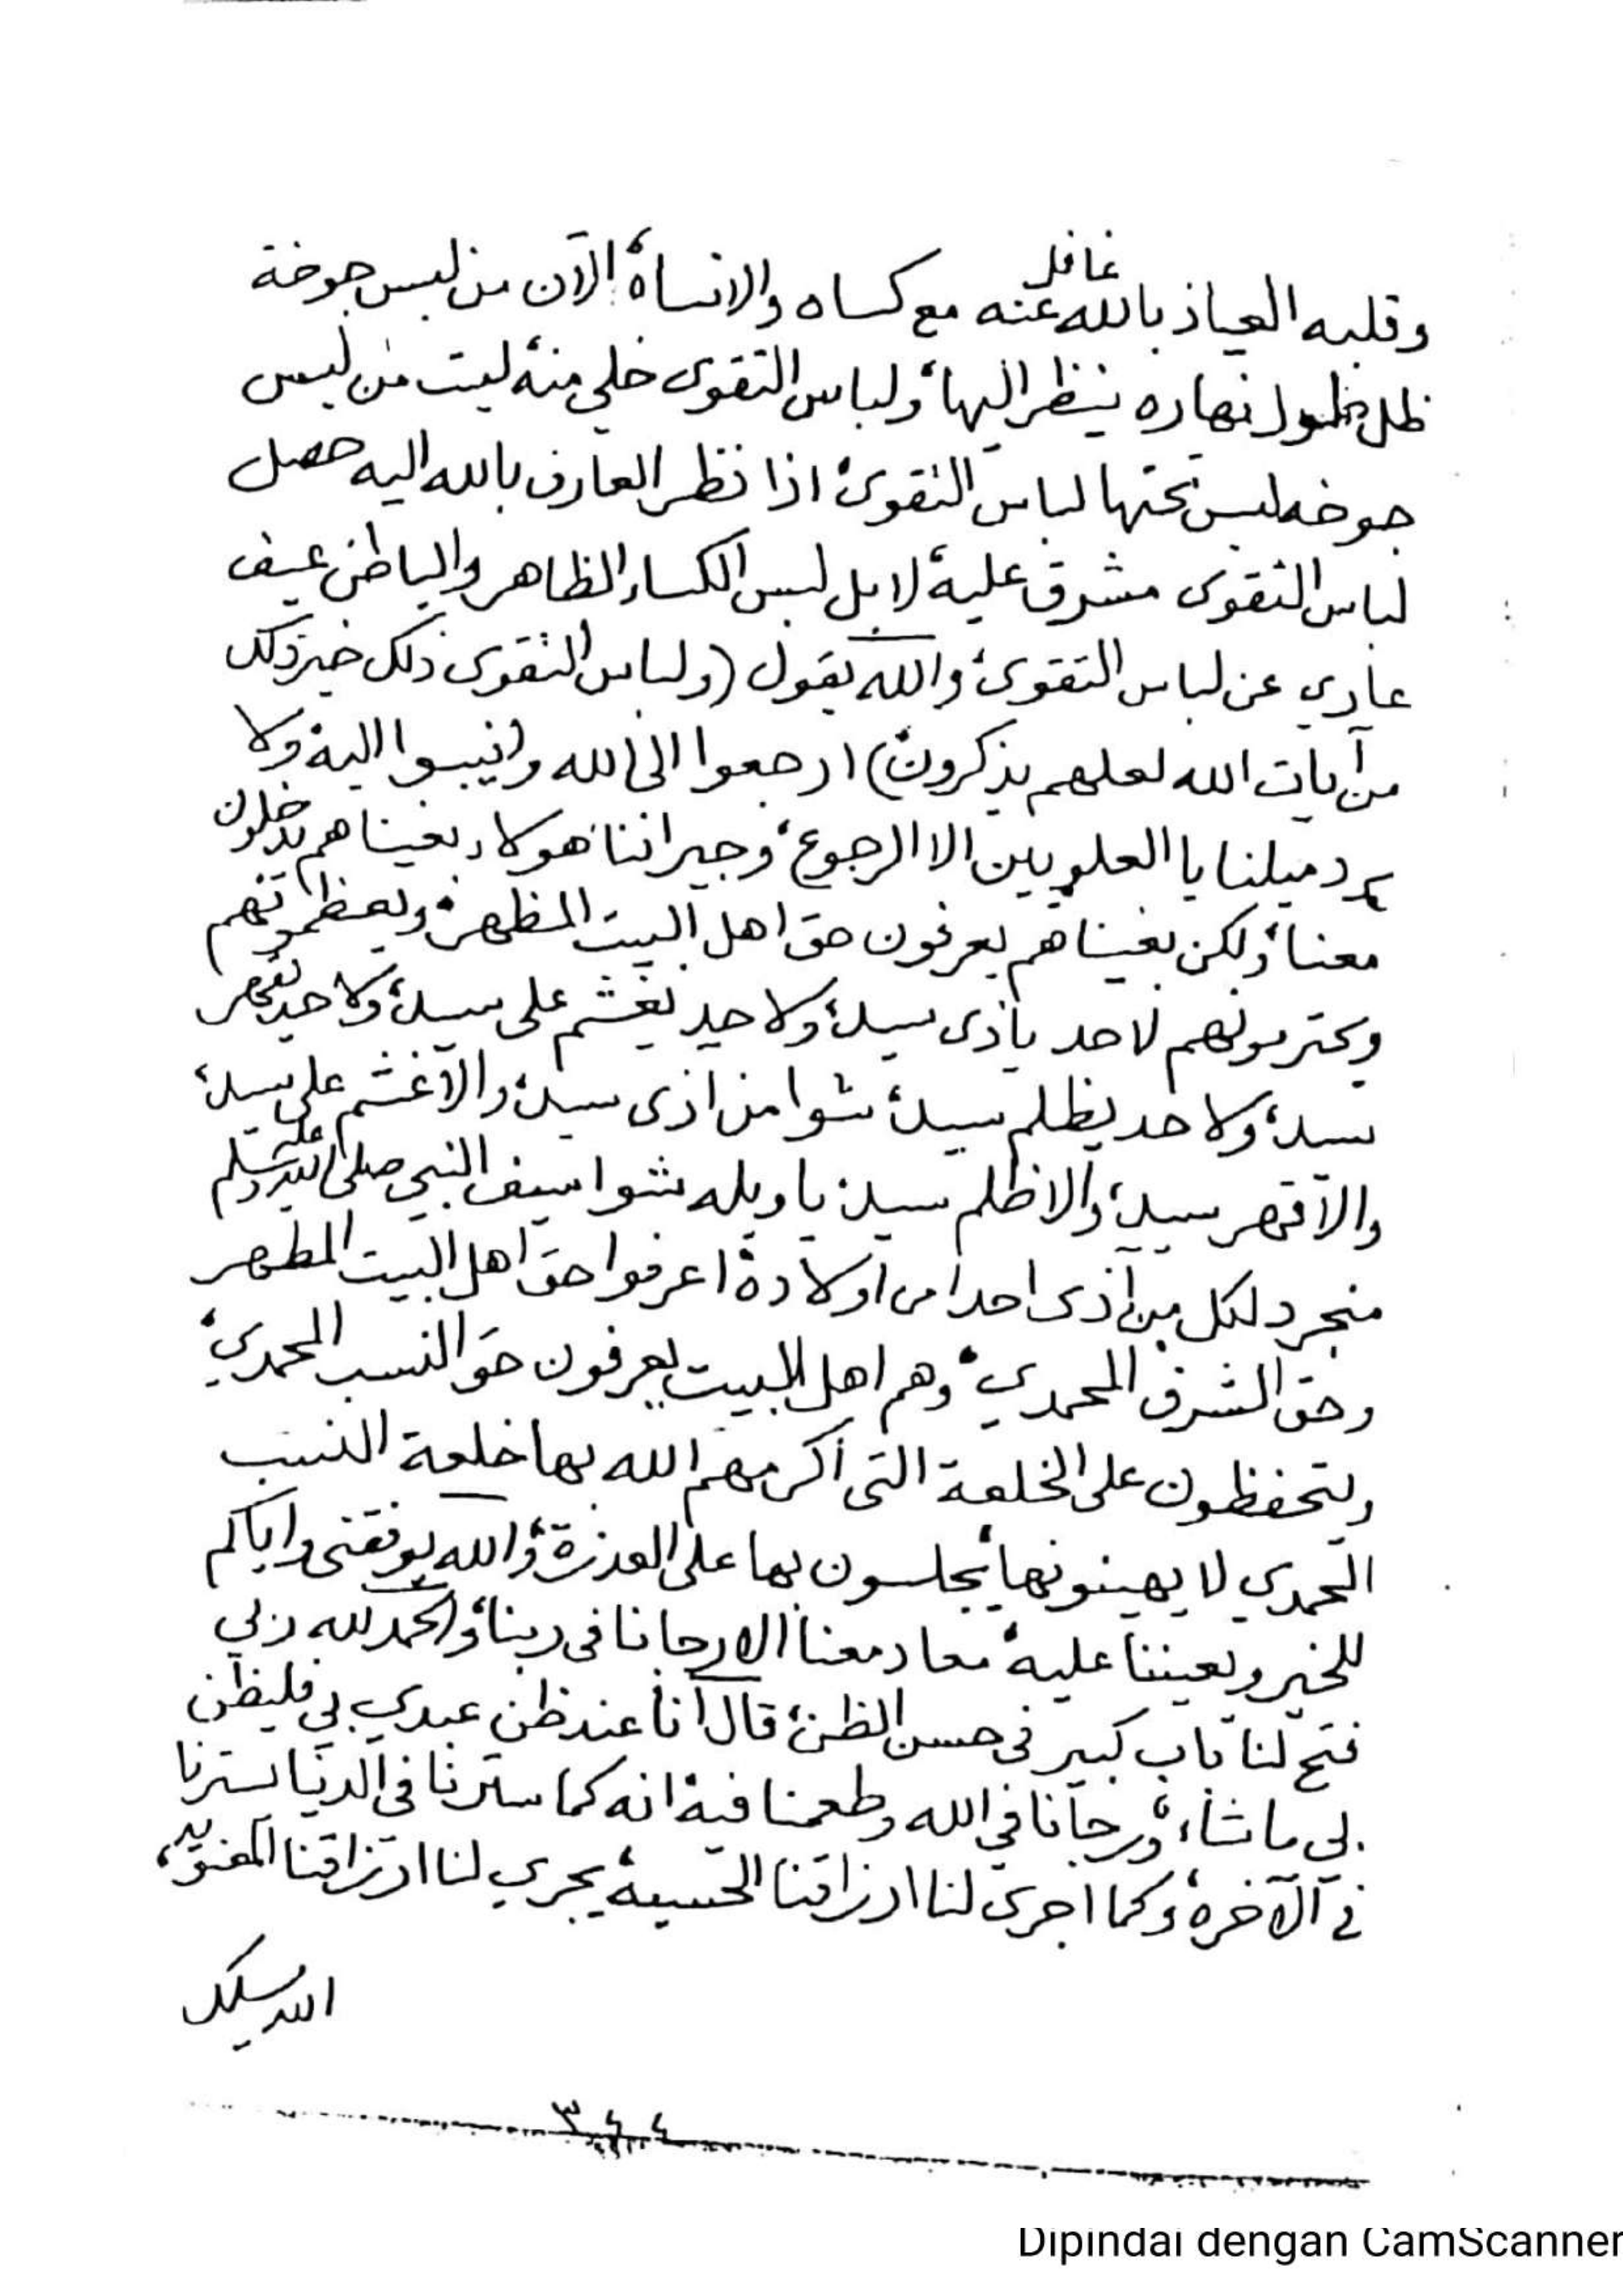 غافل
وقلبه العياذ بالله عنه مع كساه والانساه، الآن من لبس جوخة
ظل طول نهاره ينظر اليها، ولباس التقوى خلي منه، ليت من لبس
جوخه لبس تحتها لباس التقوى، اذا نظر العارف بالله اليه حصل
لباس التقوى مشرق عليه، لا بل لبس الكساء الظاهر والباطن عيف
عاري عن لباس التقوى، والله يقول (ولباس التقوى ذلك خير ذلك
من آيات الله لعلهم يذكرون) ارجعوا الى الله وانيبوا اليه، ولا
يرد ميلنا يا العلويين الا الرجوع، وجيراننا هولاء بغيناهم يدخلون
معنا، ولكن بغيناهم يعرفون حق اهل البيت المطهر، ويعظمونهم
ويحترمونهم لاحد ياذى سيد، ولا حد يغشم على سيد، ولا حد يقهر
سيد، ولا حد يظلم سيد، شوا من اذى سيد، والا غشم على سيد،
والا قهر سيد، والا ظلم سيد، يا ويله شوا سيف النبي صلى الله عليه وسلم
منجرد لكل من آذى احدا من اولاده، اعرفوا حق اهل البيت المطهر
وحق الشرف المحمدي، وهم اهل البيت يعرفون حق النسب المحمدي،
ويتحفظون على الخلعة التى أكرمهم الله بها خلعة النسب
المحمدي لا يهينونها، يجلسون بها على العذرة، والله يوفقنى واياكم
للخير ويعيننا عليه، معاد معنا الا رجانا فى ربنا، والحمد لله ربي
فتح لنا باب كبير فى حسن الظن، قال أنا عند ظن عبدي بي فليظن
بي ما شاء، ورجانا في الله وطعمنا فيه، انه كما سترنا في الدنيا يسترنا
في الآخره، وكما اجرى لنا ارزاقنا الحسيه، يجري لنا ارزاقنا المعنويه،
الله يسلك
٣٤٤
Dipindai dengan CamScanner